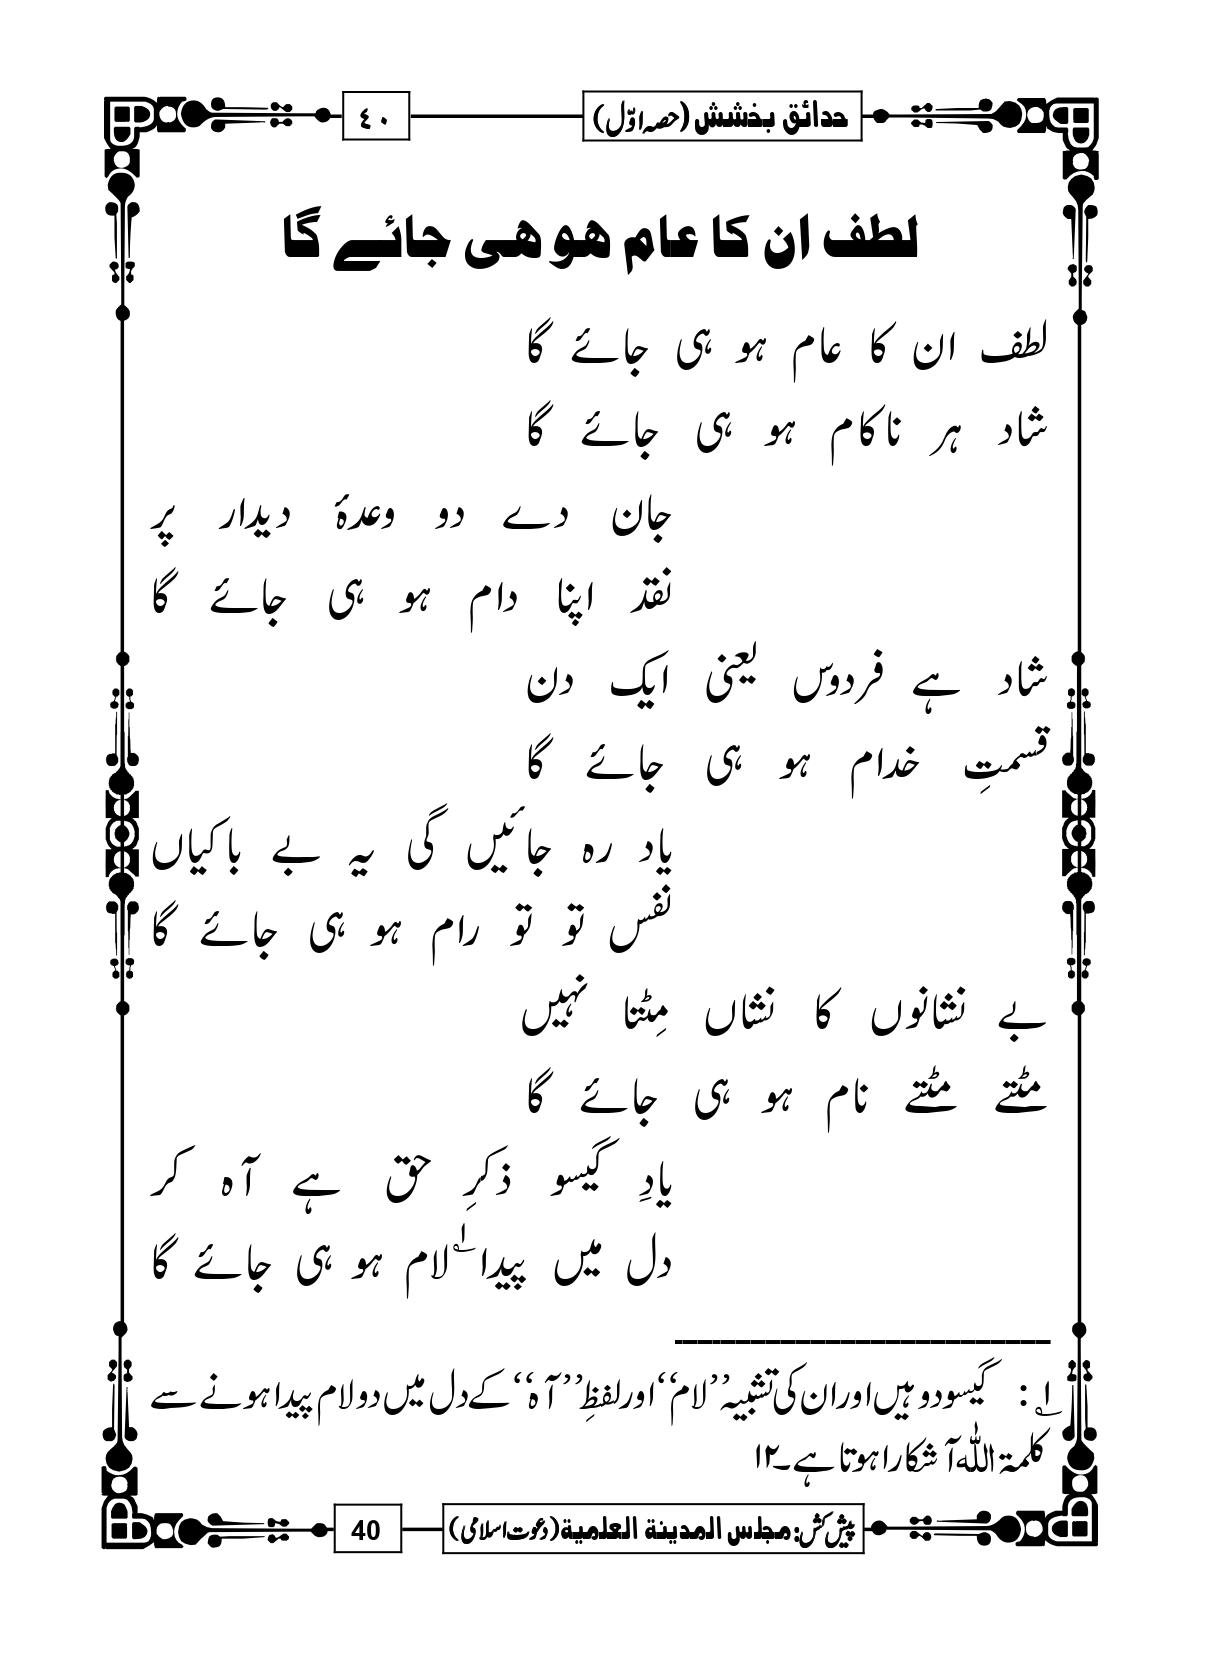 حدائق بخشش (حصہ اوّل)
٤٠
لطف ان کا عام ہو ہی جائے گا
لطف ان کا عام ہو ہی جائے گا
شاد ہر ناکام ہو ہی جائے گا
جان دے دو وعدۂ دیدار پر
نقد اپنا دام ہو ہی جائے گا
شاد ہے فردوس یعنی ایک دن
قسمتِ خدام ہو ہی جائے گا
یاد رہ جائیں گی یہ بے باکیاں
نفس تو تو رام ہو ہی جائے گا
بے نشانوں کا نشاں مِٹتا نہیں
مٹتے مٹتے نام ہو ہی جائے گا
یادِ گیسو ذکرِ حق ہے آہ کر
دل میں پیدا ۱؎ لام ہو ہی جائے گا
۱؎ : گیسو دو ہیں اور ان کی تشبیہ ’’لام‘‘ اور لفظِ ’’آہ‘‘ کے دل میں دو لام پیدا ہونے سے
کلمۃ اللّٰہ آشکارا ہوتا ہے۔۱۲
پیش کش: مجلس المدينة العلمية (دعوت اسلامی)
40